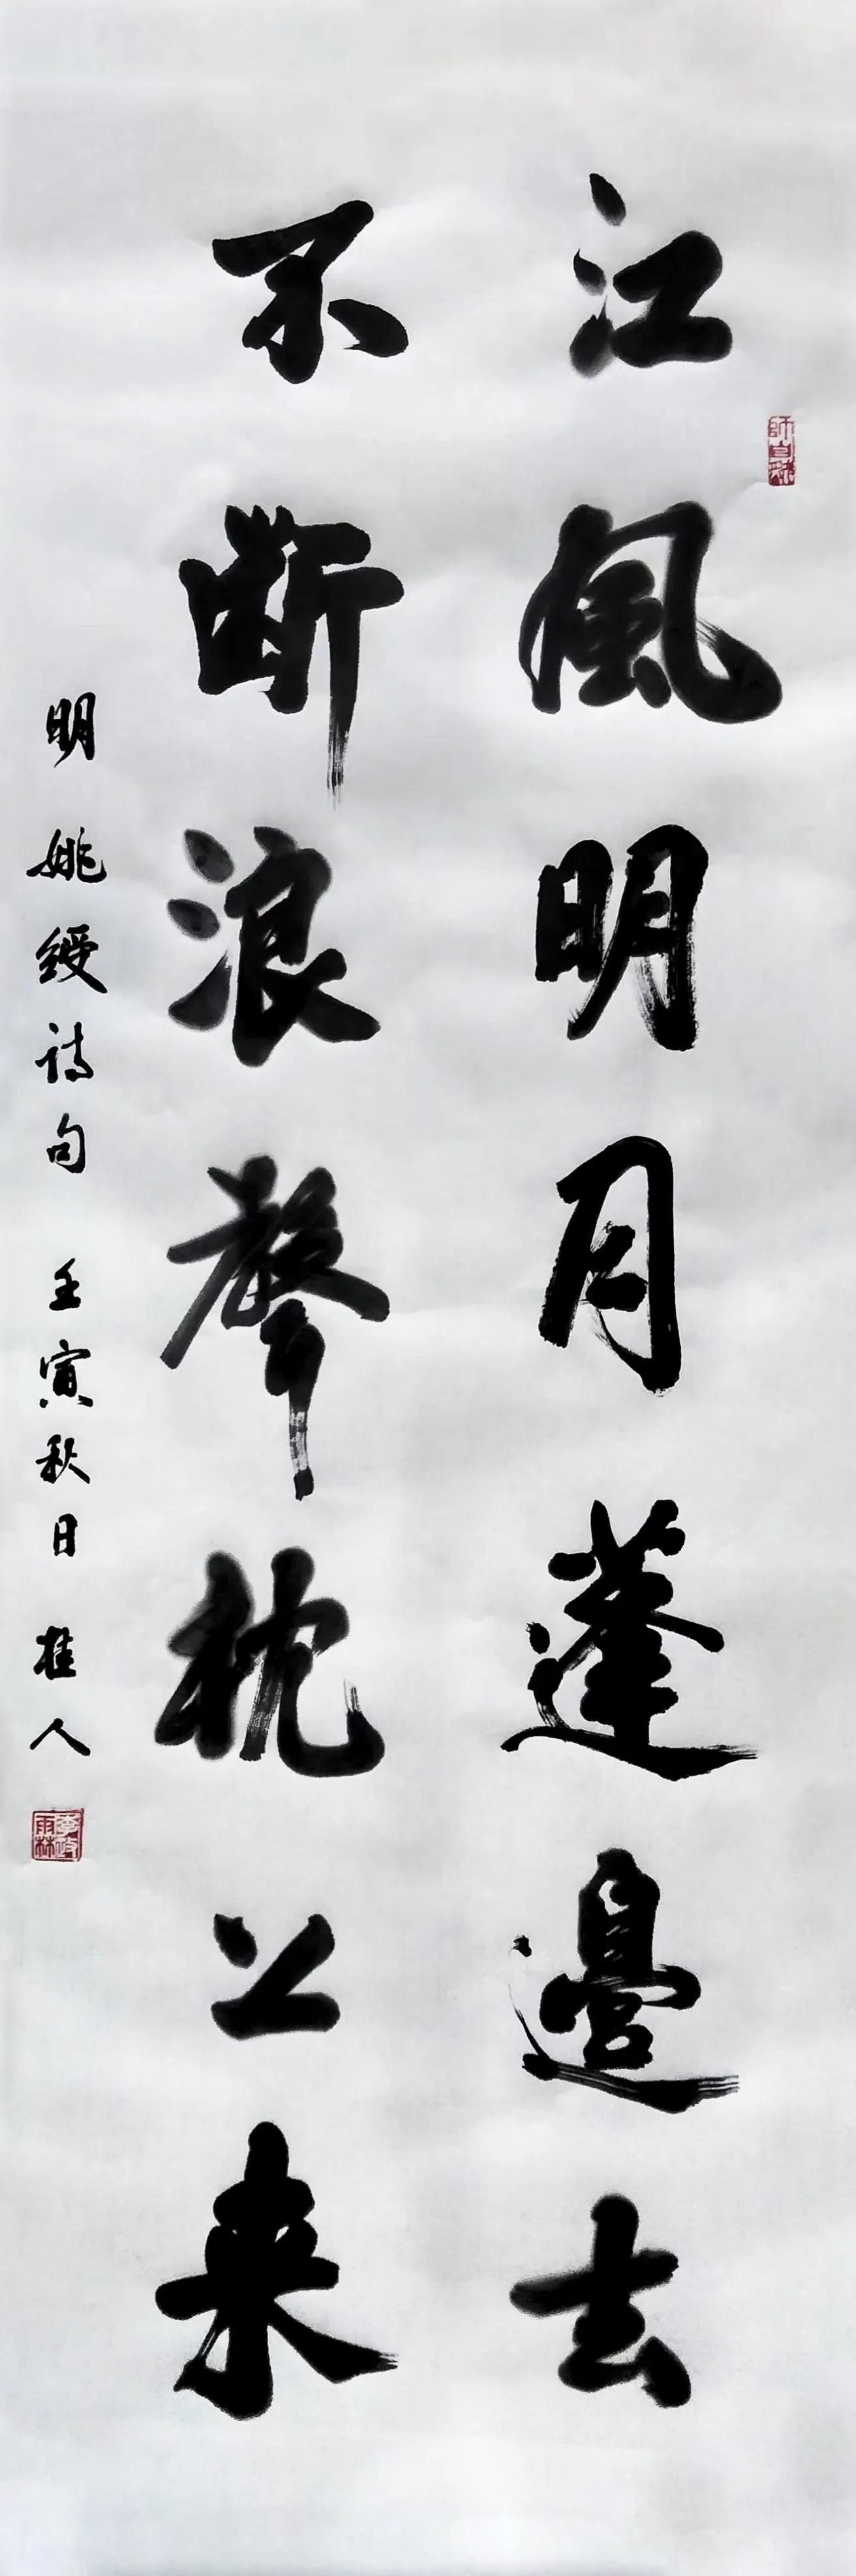 江風明月蓬邊去
不断浪聲枕上来
明姚綬诗句 壬寅秋日 桂人